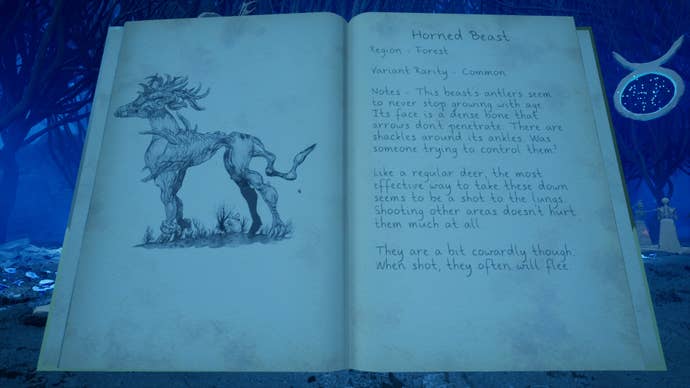 Horned Beast
Region - Forest
Variant Rarity - Common
Notes - This beast's antlers seem
to never stop growing with age.
Its face is a dense bone that
arrows don't penetrate. There are
shackles around its ankles. Was
someone trying to control them?
Like a regular deer, the most
effective way to take these down
seems to be a shot to the lungs.
Shooting other areas doesn't hurt
them much at all
They are a bit cowardly though.
When shot, they often will flee